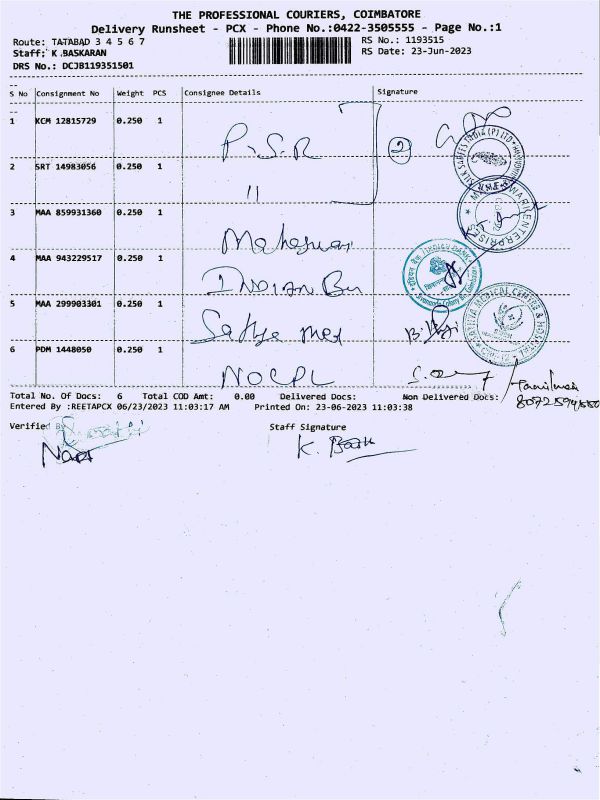 THE PROFESSIONAL COURIERS, COIMBATORE
Delivery Runsheet - PCX - Phone No.:0422-3505555 - Page No.:1
Route: TATABAD 3 4 5 6 7
RS No.: 1193515
Staff: K.BASKARAN
RS Date: 23-Jun-2023
DRS No.: DCJB119351501
S No Consignment No Weight PCS Consignee Details Signature
1 KCM 12815729 0.250 1 P.S.R 2
2 SRT 14983056 0.250 1 "
3 MAA 859931360 0.250 1
4 MAA 943229517 0.250 1 INDIAN
5 MAA 299903301 0.250 1 Sathya med
6 PDM 1448050 0.250 1 NOCPL
Total No. Of Docs: 6 Total COD Amt: 0.00 Delivered Docs: Non Delivered Docs:
Entered By :REETAPCX 06/23/2023 11:03:17 AM Printed On: 23-06-2023 11:03:38
Verified By
Staff Signature
K.